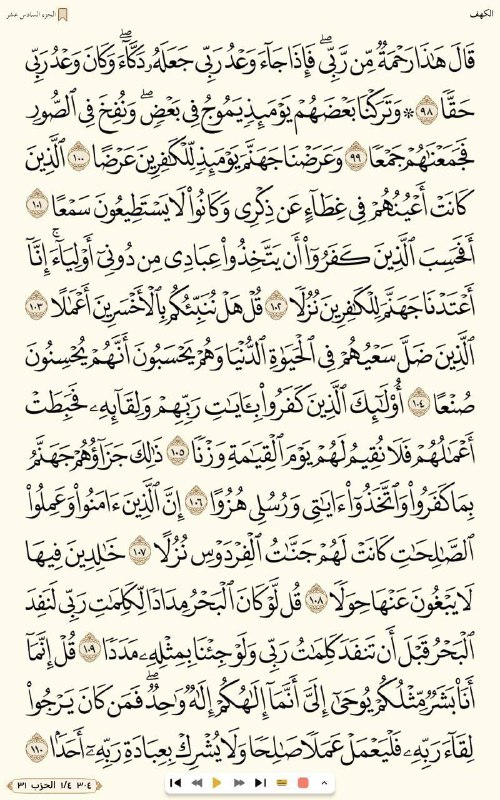 الكهف
الجزء السادس عشر
قَالَ هَٰذَا رَحْمَةٌ مِّن رَّبِّى ۖ فَإِذَا جَآءَ وَعْدُ رَبِّى جَعَلَهُۥ دَكَّآءَ ۖ وَكَانَ وَعْدُ رَبِّى
حَقًّا ٩٨ ۞ وَتَرَكْنَا بَعْضَهُمْ يَوْمَئِذٍ يَمُوجُ فِى بَعْضٍ ۖ وَنُفِخَ فِى ٱلصُّورِ
فَجَمَعْنَٰهُمْ جَمْعًا ٩٩ وَعَرَضْنَا جَهَنَّمَ يَوْمَئِذٍ لِّلْكَٰفِرِينَ عَرْضًا ١٠٠ ٱلَّذِينَ
كَانَتْ أَعْيُنُهُمْ فِى غِطَآءٍ عَن ذِكْرِى وَكَانُوا۟ لَا يَسْتَطِيعُونَ سَمْعًا ١٠١
أَفَحَسِبَ ٱلَّذِينَ كَفَرُوٓا۟ أَن يَتَّخِذُوا۟ عِبَادِى مِن دُونِىٓ أَوْلِيَآءَ ۚ إِنَّآ
أَعْتَدْنَا جَهَنَّمَ لِلْكَٰفِرِينَ نُزُلًا ١٠٢ قُلْ هَلْ نُنَبِّئُكُم بِٱلْأَخْسَرِينَ أَعْمَٰلًا ١٠٣
ٱلَّذِينَ ضَلَّ سَعْيُهُمْ فِى ٱلْحَيَوٰةِ ٱلدُّنْيَا وَهُمْ يَحْسَبُونَ أَنَّهُمْ يُحْسِنُونَ
صُنْعًا ١٠٤ أُو۟لَٰٓئِكَ ٱلَّذِينَ كَفَرُوا۟ بِـَٔايَٰتِ رَبِّهِمْ وَلِقَآئِهِۦ فَحَبِطَتْ
أَعْمَٰلُهُمْ فَلَا نُقِيمُ لَهُمْ يَوْمَ ٱلْقِيَٰمَةِ وَزْنًا ١٠٥ ذَٰلِكَ جَزَآؤُهُمْ جَهَنَّمُ
بِمَا كَفَرُوا۟ وَٱتَّخَذُوٓا۟ ءَايَٰتِى وَرُسُلِى هُزُوًا ١٠٦ إِنَّ ٱلَّذِينَ ءَامَنُوا۟ وَعَمِلُوا۟
ٱلصَّٰلِحَٰتِ كَانَتْ لَهُمْ جَنَّٰتُ ٱلْفِرْدَوْسِ نُزُلًا ١٠٧ خَٰلِدِينَ فِيهَا
لَا يَبْغُونَ عَنْهَا حِوَلًا ١٠٨ قُل لَّوْ كَانَ ٱلْبَحْرُ مِدَادًا لِّكَلِمَٰتِ رَبِّى لَنَفِدَ
ٱلْبَحْرُ قَبْلَ أَن تَنفَدَ كَلِمَٰتُ رَبِّى وَلَوْ جِئْنَا بِمِثْلِهِۦ مَدَدًا ١٠٩ قُلْ إِنَّمَآ
أَنَا۠ بَشَرٌ مِّثْلُكُمْ يُوحَىٰٓ إِلَىَّ أَنَّمَآ إِلَٰهُكُمْ إِلَٰهٌ وَٰحِدٌ ۖ فَمَن كَانَ يَرْجُوا۟
لِقَآءَ رَبِّهِۦ فَلْيَعْمَلْ عَمَلًا صَٰلِحًا وَلَا يُشْرِكْ بِعِبَادَةِ رَبِّهِۦٓ أَحَدًۢا ١١٠
٣٠٤ ١/٤ الحزب ٣١